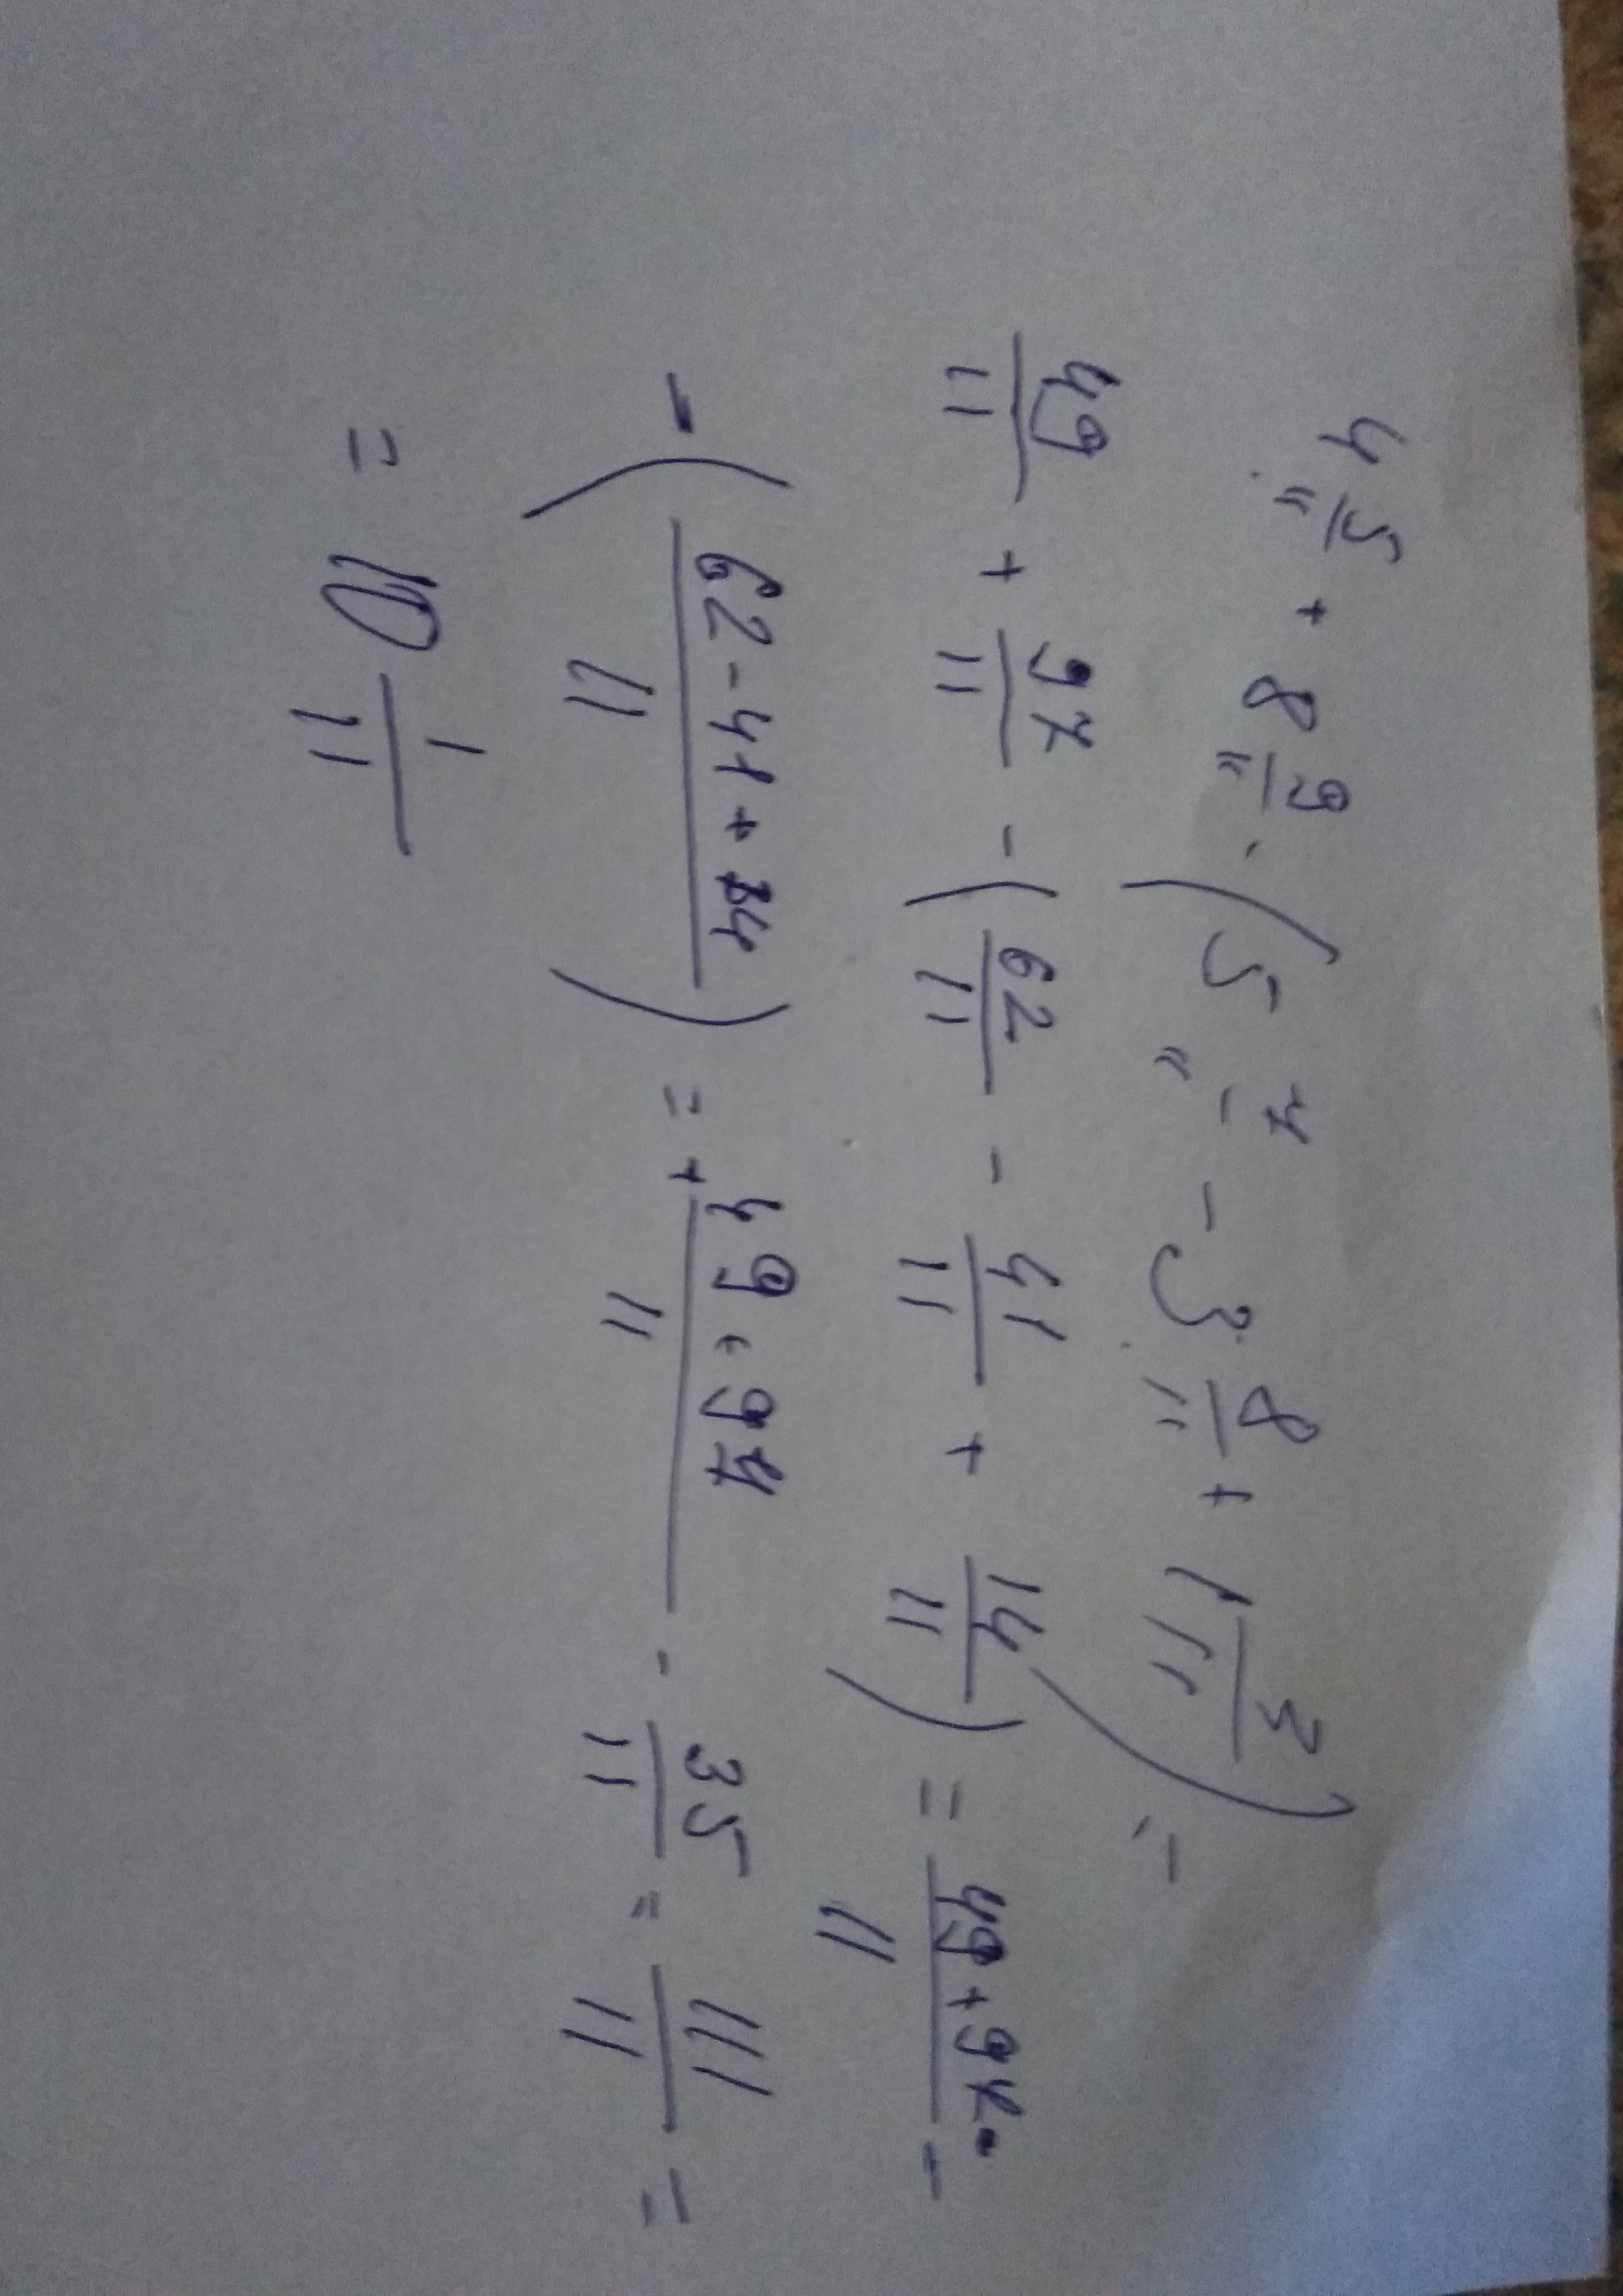 4 5/11 + 8 9/11 - (5 7/11 - 3 8/11 + 1 3/11) =
49/11 + 97/11 - (62/11 - 41/11 + 14/11) = (49+97)/11 -
- ((62-41+14)/11) = (49+97)/11 - 35/11 = 111/11 =
= 10 1/11